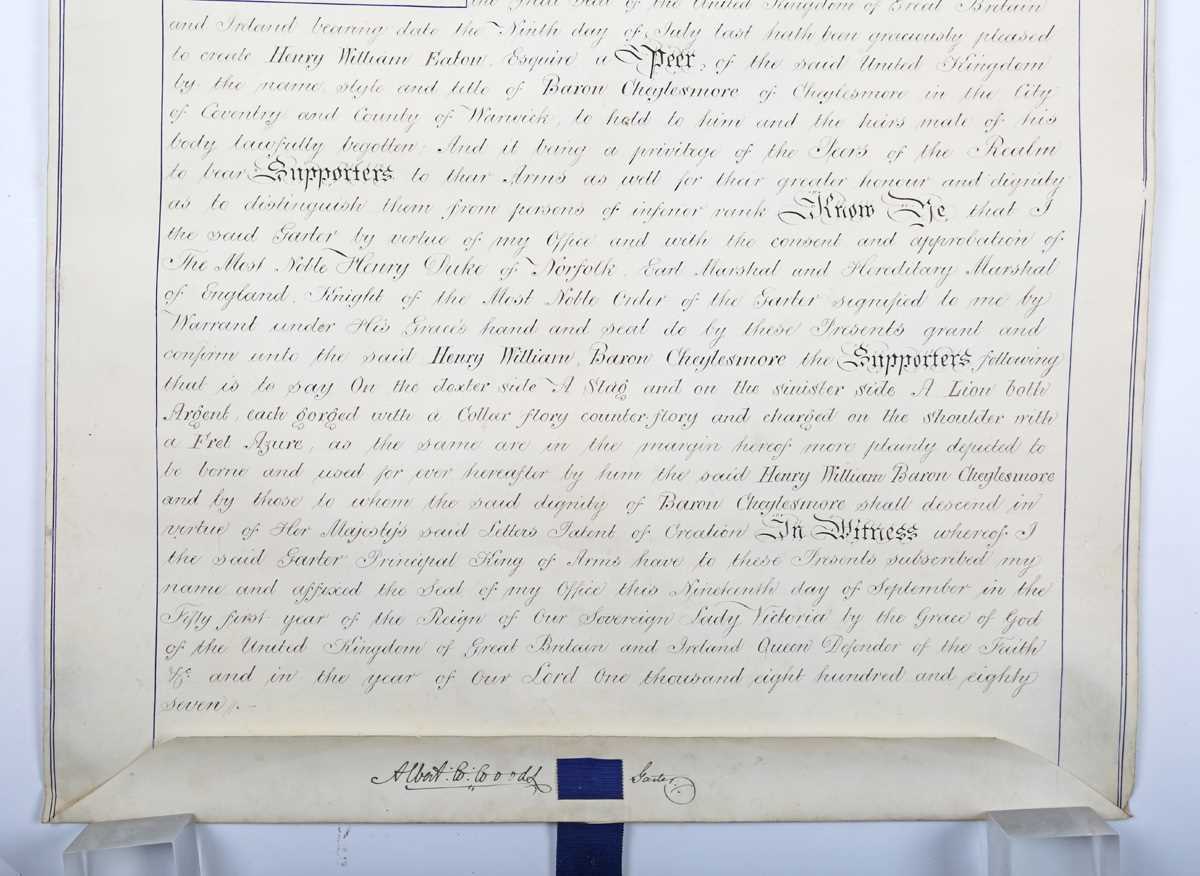 the Great Seal of the United Kingdom of Great Britain
and Ireland bearing date the Ninth day of July last hath been graciously pleased
to create Henry William Eaton, Esquire a Peer, of the said United Kingdom
by the name, style and title of Baron Cheylesmore of Cheylesmore in the City
of Coventry and County of Warwick, to hold to him and the heirs male of his
body lawfully begotten; And it being a privilege of the Peers of the Realm
to bear Supporters to their Arms as well for their greater honour and dignity
as to distinguish them from persons of inferior rank Know Ye, that I
the said Garter by virtue of my Office and with the consent and approbation of
The Most Noble Henry Duke of Norfolk, Earl Marshal and Hereditary Marshal
of England, Knight of the Most Noble Order of the Garter signified to me by
Warrant under His Grace's hand and seal do by these Presents grant and
confirm unto the said Henry William, Baron Cheylesmore the Supporters following
that is to say On the dexter side A Stag and on the sinister side A Lion both
Argent, each gorged with a Collar flory counter-flory and charged on the shoulder with
a Fret Azure, as the same are in the margin hereof more plainly depicted to
be borne and used for ever hereafter by him the said Henry William Baron Cheylesmore
and by those to whom the said dignity of Baron Cheylesmore shall descend in
virtue of Her Majesty's said Letters Patent of Creation In Witness whereof I
the said Garter Principal King of Arms have to these Presents subscribed my
name and affixed the Seal of my Office this Nineteenth day of September in the
Fifty first year of the Reign of Our Sovereign Lady Victoria by the Grace of God
of the United Kingdom of Great Britain and Ireland Queen Defender of the Faith
&c. and in the year of Our Lord One thousand eight hundred and eighty
seven.
Albert W. Woods Garter.